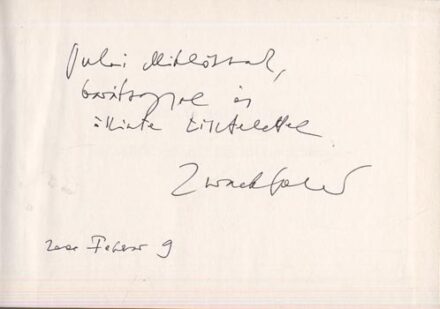 Miklósnak,
barátsággal és
őszinte tisztelettel
Zwack Péter
Február 9